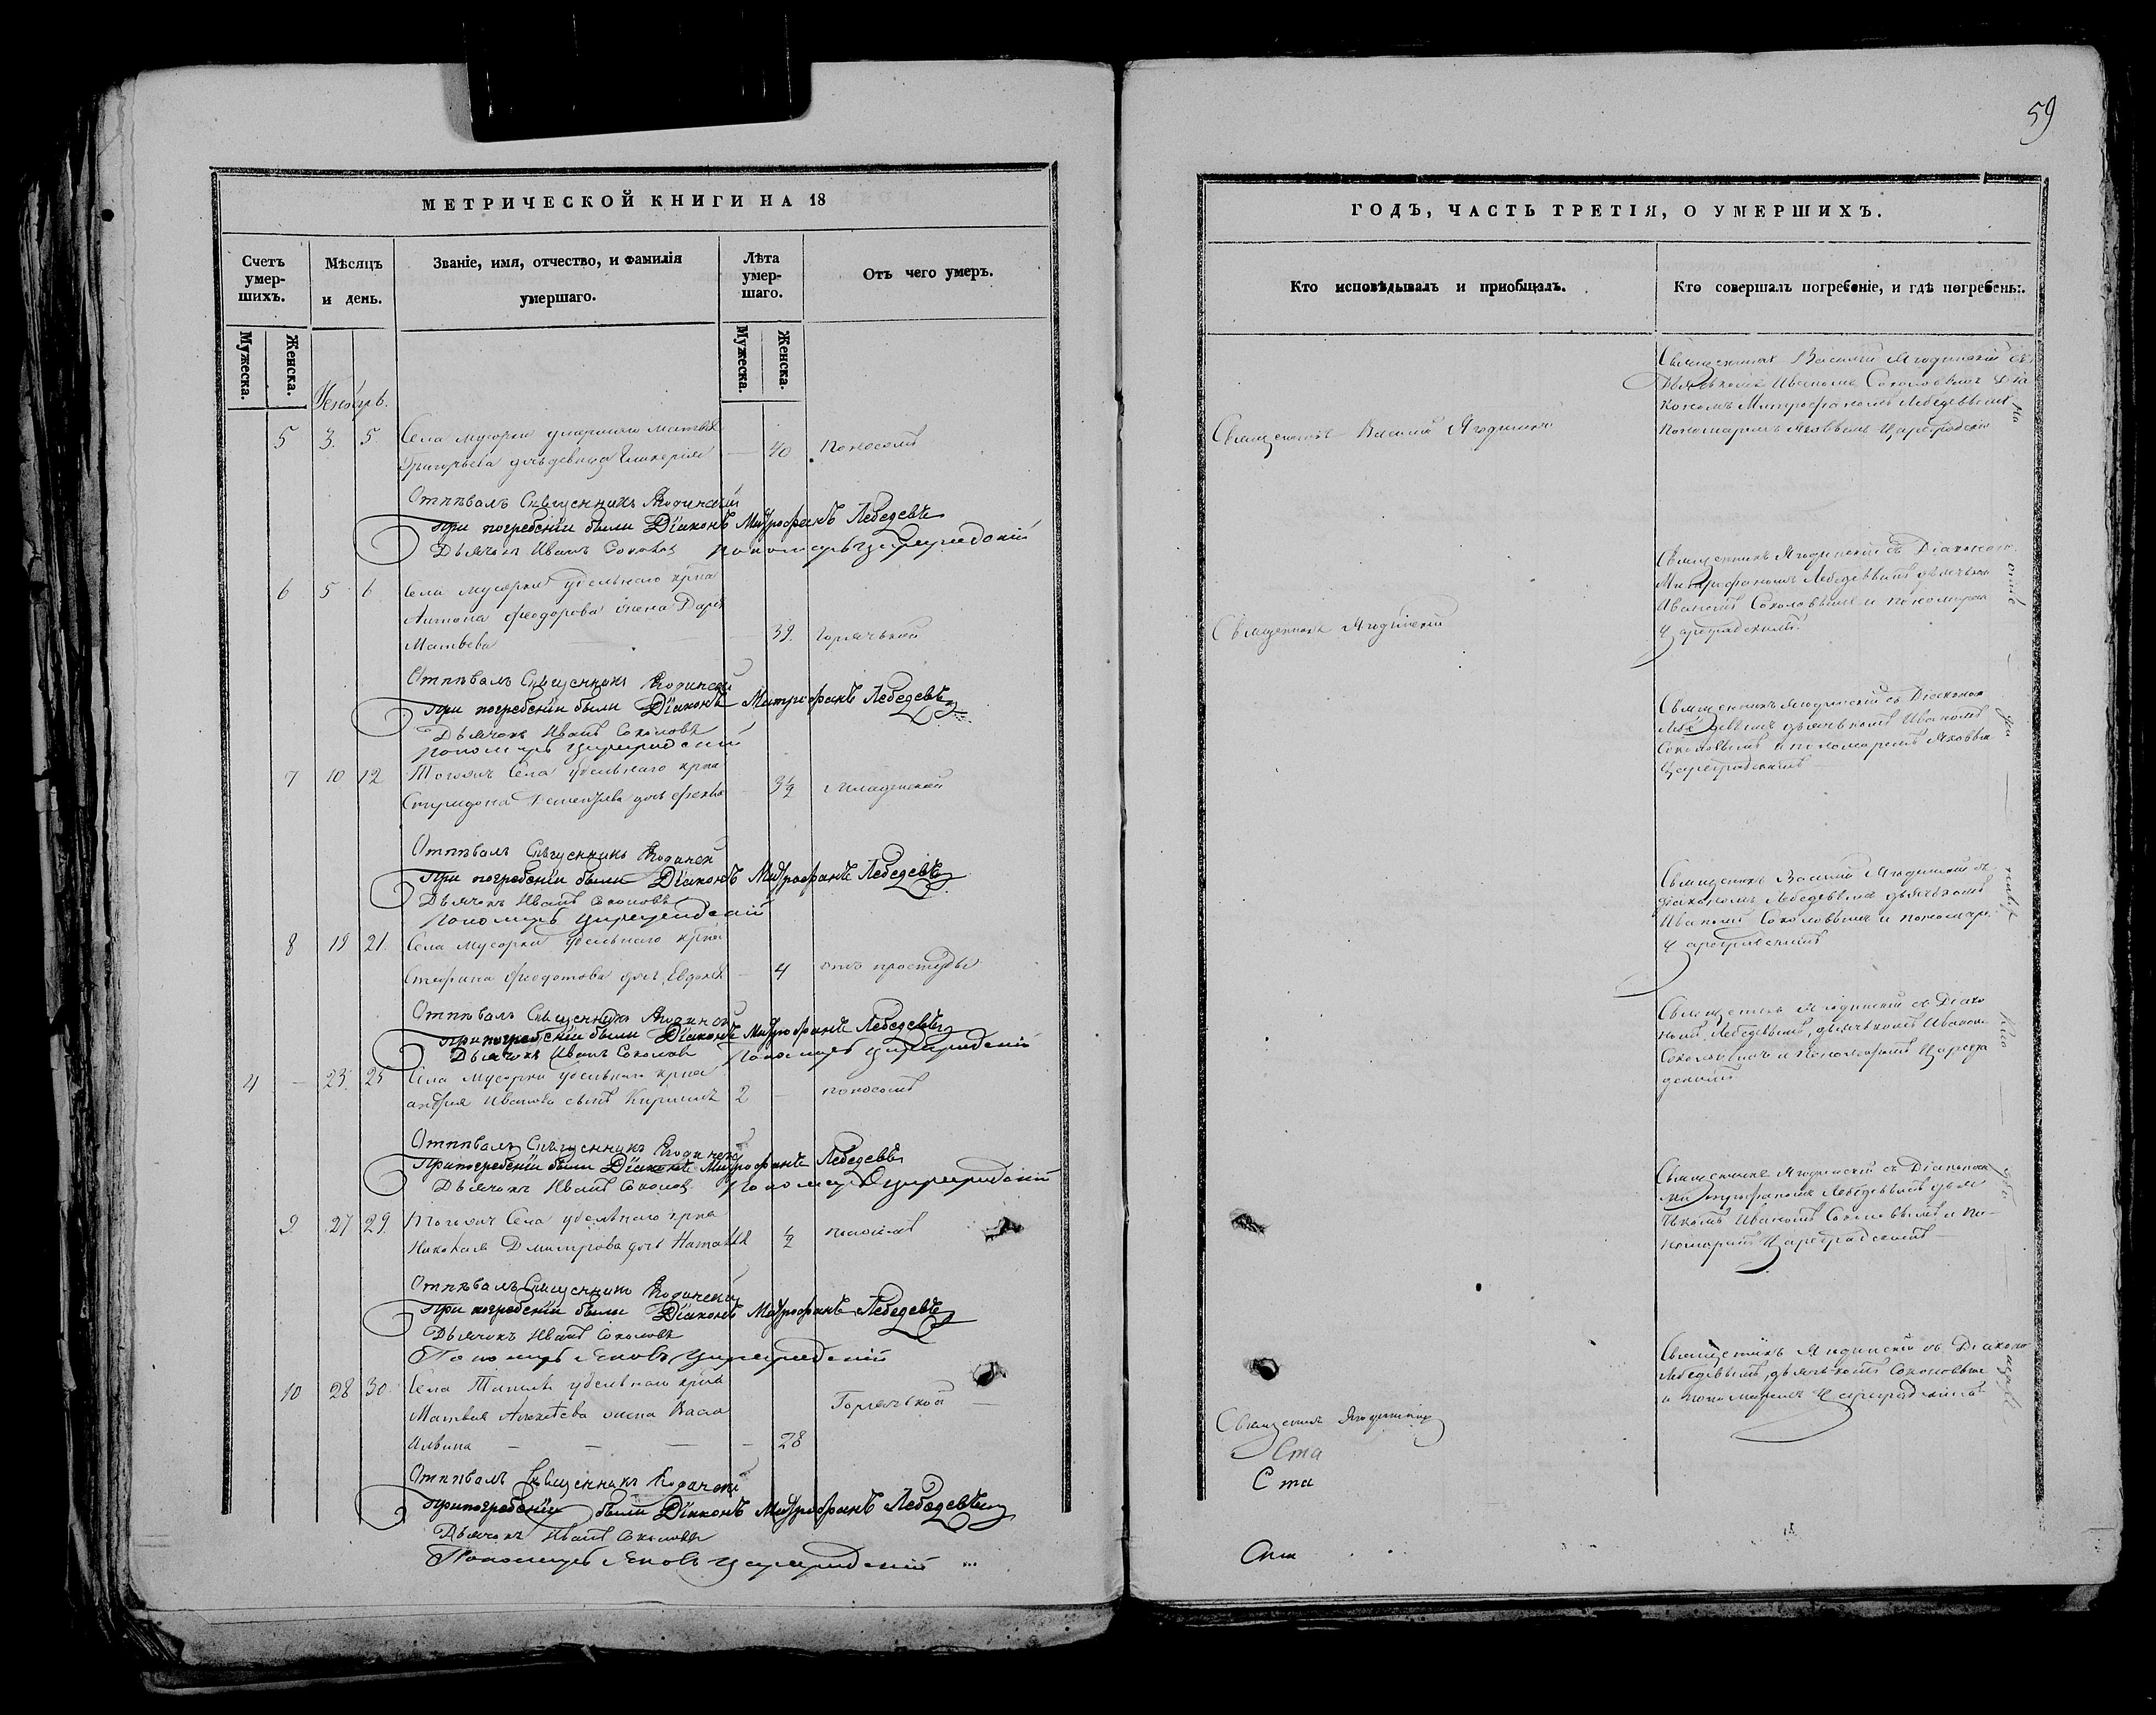 МЕТРИЧЕСКОЙ КНИГИ НА 18
Счетъ умер-шихъ.
Мѣсяцъ и день.
Званіе, имя, отчество, и фамилія умершаго.
Лѣта умер-шаго.
Отъ чего умеръ.
Мужеска.
Женска.
Мужеска.
Женска.
5 3. 5. Села Мусорки умершаго Матвея
Григорьева дочь девица Гликерия — 40 поносомъ
Отпѣвалъ Священникъ Ягодинский
При погребеніи были Діаконъ Митрофанъ Лебедевъ
Дьячокъ Иванъ Соколов пономарь Цареградскій
6 5 6 Села Мусорки удельнаго крна
Антона Феодорова жена Дарья
Матвеева 39. Горячькой
Отпѣвалъ Священникъ Ягодинский
При погребеніи были Діаконъ Митрофанъ Лебедевъ
Дьячокъ Иванъ Соколовъ
пономарь Цареградский
7 10 12 Тогожъ Села удельнаго крна
Спиридона дочь 3½ Младенской
Отпѣвалъ Священникъ Ягодинск
При погребеніи были Діаконъ Митрофанъ Лебедевъ
Дьячокъ Иванъ Соколовъ
пономарь Цареградский
8 19 21. Села Мусорки удельнаго крна
Стефана Феодотова дочь Евдокия — 4 отъ простуды
Отпѣвалъ Священникъ Ягодинск
При погребеніи были Діаконъ Митрофанъ Лебедевъ
Дьячокъ Иванъ Соколов Пономарь Цареградскій
4 — 23. 25 Села Мусорки удельнаго крна
Андрея Иванова сынъ Кириллъ 2 — поносомъ
Отпѣвалъ Священникъ Ягодинскй
При погребеніи были Діаконъ Митрофанъ Лебедевъ
Дьячокъ Иванъ Соколов Пономарь Цареградскій
9 27 29. Тогожъ Села удельнаго крна
Николая Димитрова дочь Наталья ½ поносомъ
Отпѣвалъ Священникъ Ягодинский
При погребеніи были Діаконъ Митрофанъ Лебедевъ
Дьячокъ Иванъ Соколовъ
Пономарь Яковъ Цареградский
10 28 30. Села удельнаго крна
Матвея Алексеева жена Васса Горячькой —
28
Отпѣвалъ Священникъ Ягодинскй
При погребеніи были Діаконъ Митрофанъ Лебедевъ
Дьячокъ Иванъ Соколовъ
Пономарь Яковъ Цареградский
59
ГОДЪ, ЧАСТЬ ТРЕТІЯ, О УМЕРШИХЪ.
Кто исповѣдывалъ и приобщалъ.
Кто совершалъ погребеніе, и гдѣ погребены.
Священникъ Василий Ягодинский
Священникъ Василий Ягодинский съ
Дьячькомъ Иваномъ Соколовымъ Діа
кономъ Митрофаномъ Лебедевымъ
Пономаремъ Яковымъ Цареградски
Священникъ Ягодинский
Священникъ Ягодинский съ Діакономъ
Митрофаномъ Лебедевымъ дьячькомъ
Иваномъ Соколовымъ и пономаремъ
Цареградскимъ.
Священникъ Ягодинский съ Діакономъ
Лебедевымъ дьячькомъ Иваномъ
Соколовымъ и пономаремъ Яковым
Цареградскимъ
Священникъ Василий Ягодинский съ
діакономъ Лебедевымъ дьячькомъ
Иваномъ Соколовымъ и пономаре
Цареградскимъ
Священникъ Ягодинский съ Діако
номъ Лебедевымъ, дьячькомъ Иваном
Соколовымъ и пономаремъ Царегра
дскимъ
Священникъ Ягодинский съ Діакономъ
Митрофаномъ Лебедевымъ дья
чкомъ Иваномъ Соколовымъ и по-
номаремъ Цареградскимъ —
Священникъ Ягодинский
Священникъ Ягодинский съ Діаконо
Лебедевымъ, дьячькомъ Соколовым
и пономаремъ Цареградскимъ
Ста
Ста
На
кла